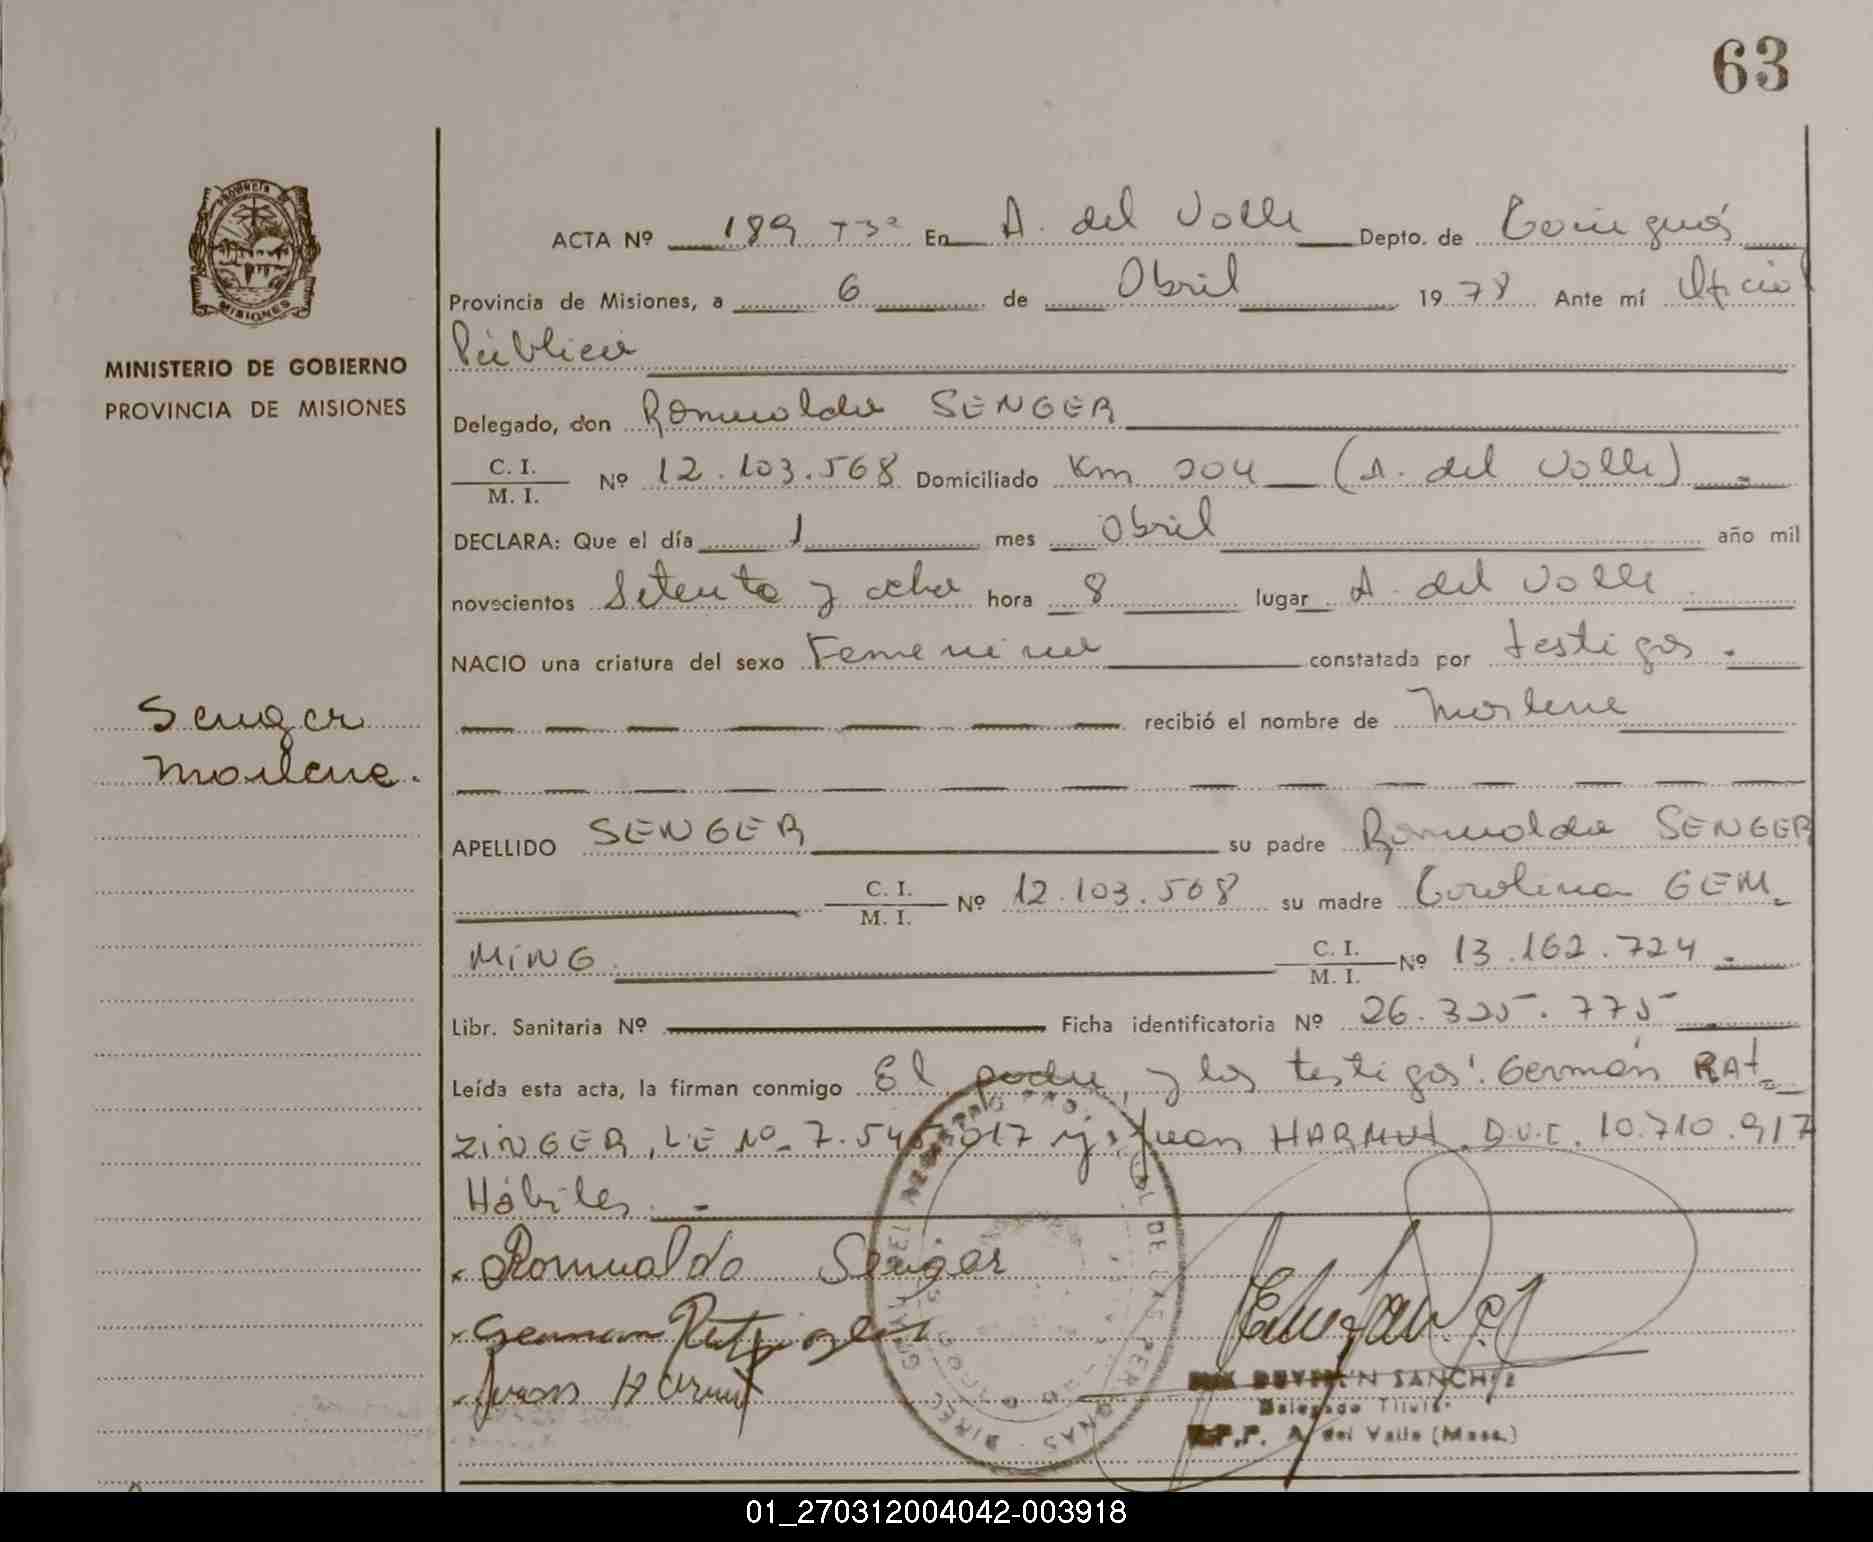 63
PROVINCIA DE
MISIONES
MINISTERIO DE GOBIERNO
PROVINCIA DE MISIONES
Senger
Marlene.
ACTA Nº 189 T3º En A. del Valle Depto. de Cainguás
Provincia de Misiones, a 6 de Abril 1978 Ante mí Oficial
Público
Delegado, don Romualdo SENGER
C. I. / M. I. Nº 12.103.568 Domiciliado Km 204 (A. del Valle)
DECLARA: Que el día 1 mes Abril año mil
novecientos Setenta y ocho hora 8 lugar A. del Valle
NACIO una criatura del sexo Femenino constatada por testigos.
recibió el nombre de Marlene
APELLIDO SENGER su padre Romualdo SENGER
C. I. / M. I. Nº 12.103.568 su madre Carolina GEM
MING C. I. / M. I. Nº 13.162.724
Libr. Sanitaria Nº Ficha identificatoria Nº 26.325.775
Leída esta acta, la firman conmigo El padre, y los testigos: Germán RAt
ZINGER, L.E Nº 7.545.017 y Juan HARMUt. D.U.I. 10.710.917
Hábiles.
Romualdo Senger
German Ratzinger
Juan Harmut
SANCHEZ
Delegado Titular
R.P.P. A. del Valle (Mnes.)
01_270312004042-003918